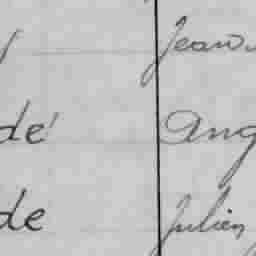 Jean
dé Ang
de Julien